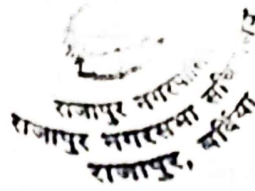 राजापुर नगरपा
राजापुर नगरसभा सचि
राजापुर, बर्दिया